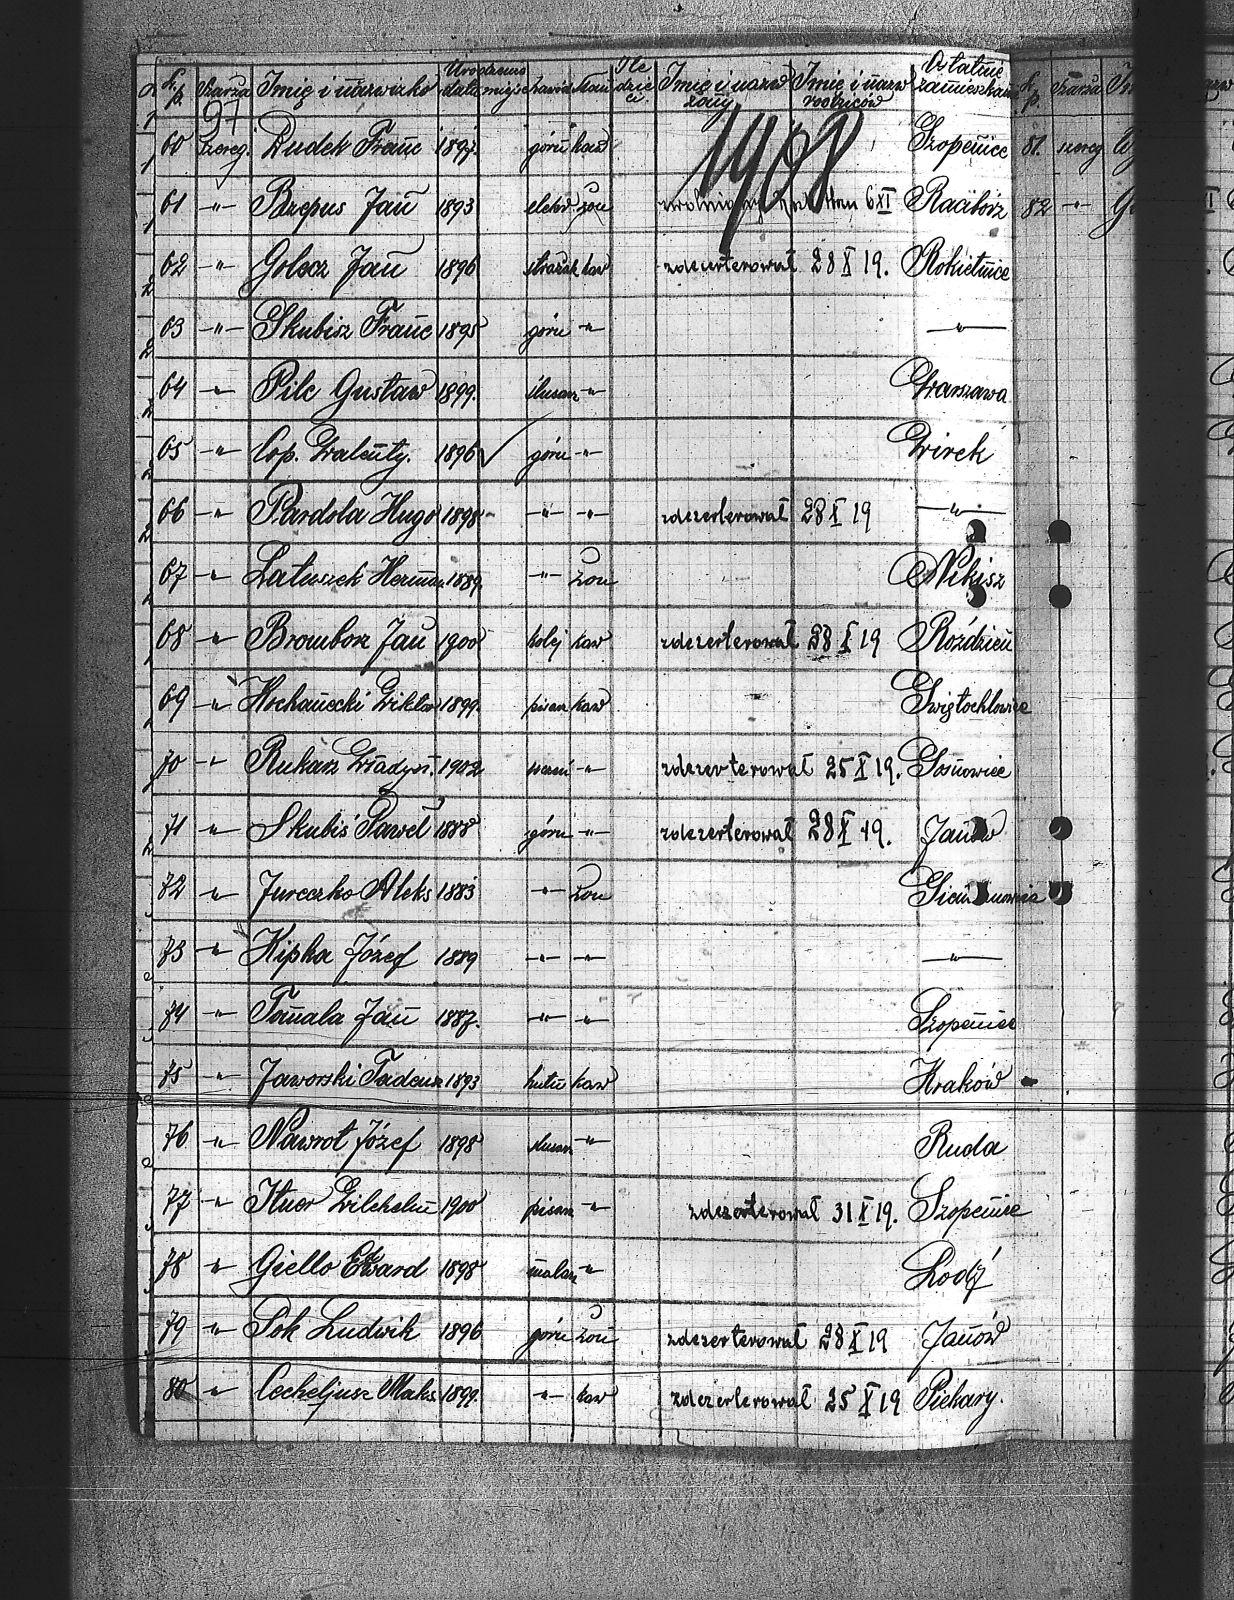 L. p. Szarża Imię i nazwisko Urodzenia data miejsc Zawód Stan Ile dzieci Imię i nazw żony Imię i nazw rodziców Ostatnie zamieszkan L. p. Szarża
97
1908
60 szereg. Dudek Franc 1897. górn kaw Szopenice 81. szereg
61 -"- Brzepus Jan 1893 elektr żon 6 XI Racibórz 82 -"-
62 -"- Golecz Jan 1896 strażak kaw zdezerterował 28 X 19. Rokietnice
63 -"- Skubisz Franc 1895 górn -"- -"-
64 -"- Pilc Gustaw 1899. ślusarz -"- Warszawa
65 -"- Cop. Walenty. 1896 górn -"- Wirek
66 -"- Pardola Hugo 1898 -"- -"- zdezerterował 28 X 19 -"-
67 -"- Latuszek Herman 1889. -"- żon Nikisz
68 -"- Brombosz Jan 1900 kolej kaw zdezerterował 28 X 19 Roździeń
69 -"- Kochanecki Wiktor 1899. pisarz kaw Świętochłowice
70 -"- Rukarz Władysł. 1902 -"- zdezerterował 25 X 19. Sosnowiec
71 -"- Skubiś Paweł 1888 górn -"- zdezerterował 28 X 19. Janów
72 -"- Jureczko Aleks 1883 -"- żon
73 -"- Kipka Józef 1889 -"- -"- -"-
74 -"- Tomala Jan 1887. -"- -"- Szopenice
75 -"- Jaworski Tadeusz 1893 hutn kaw Kraków
76 -"- Nawrot Józef 1898 ślusarz -"- Ruda
77 -"- Wilchelm 1900 pisarz -"- zdezerterował 31 X 19. Szopenice
78 -"- Giello Edward 1898 malarz -"- Łodź
79 -"- Sok Ludwik 1896 górn żon zdezerterował 28 X 19 Janów
80 -"- Cecheljusz Maks. 1899. -"- kaw zdezerterował 25 X 19 Piekary.